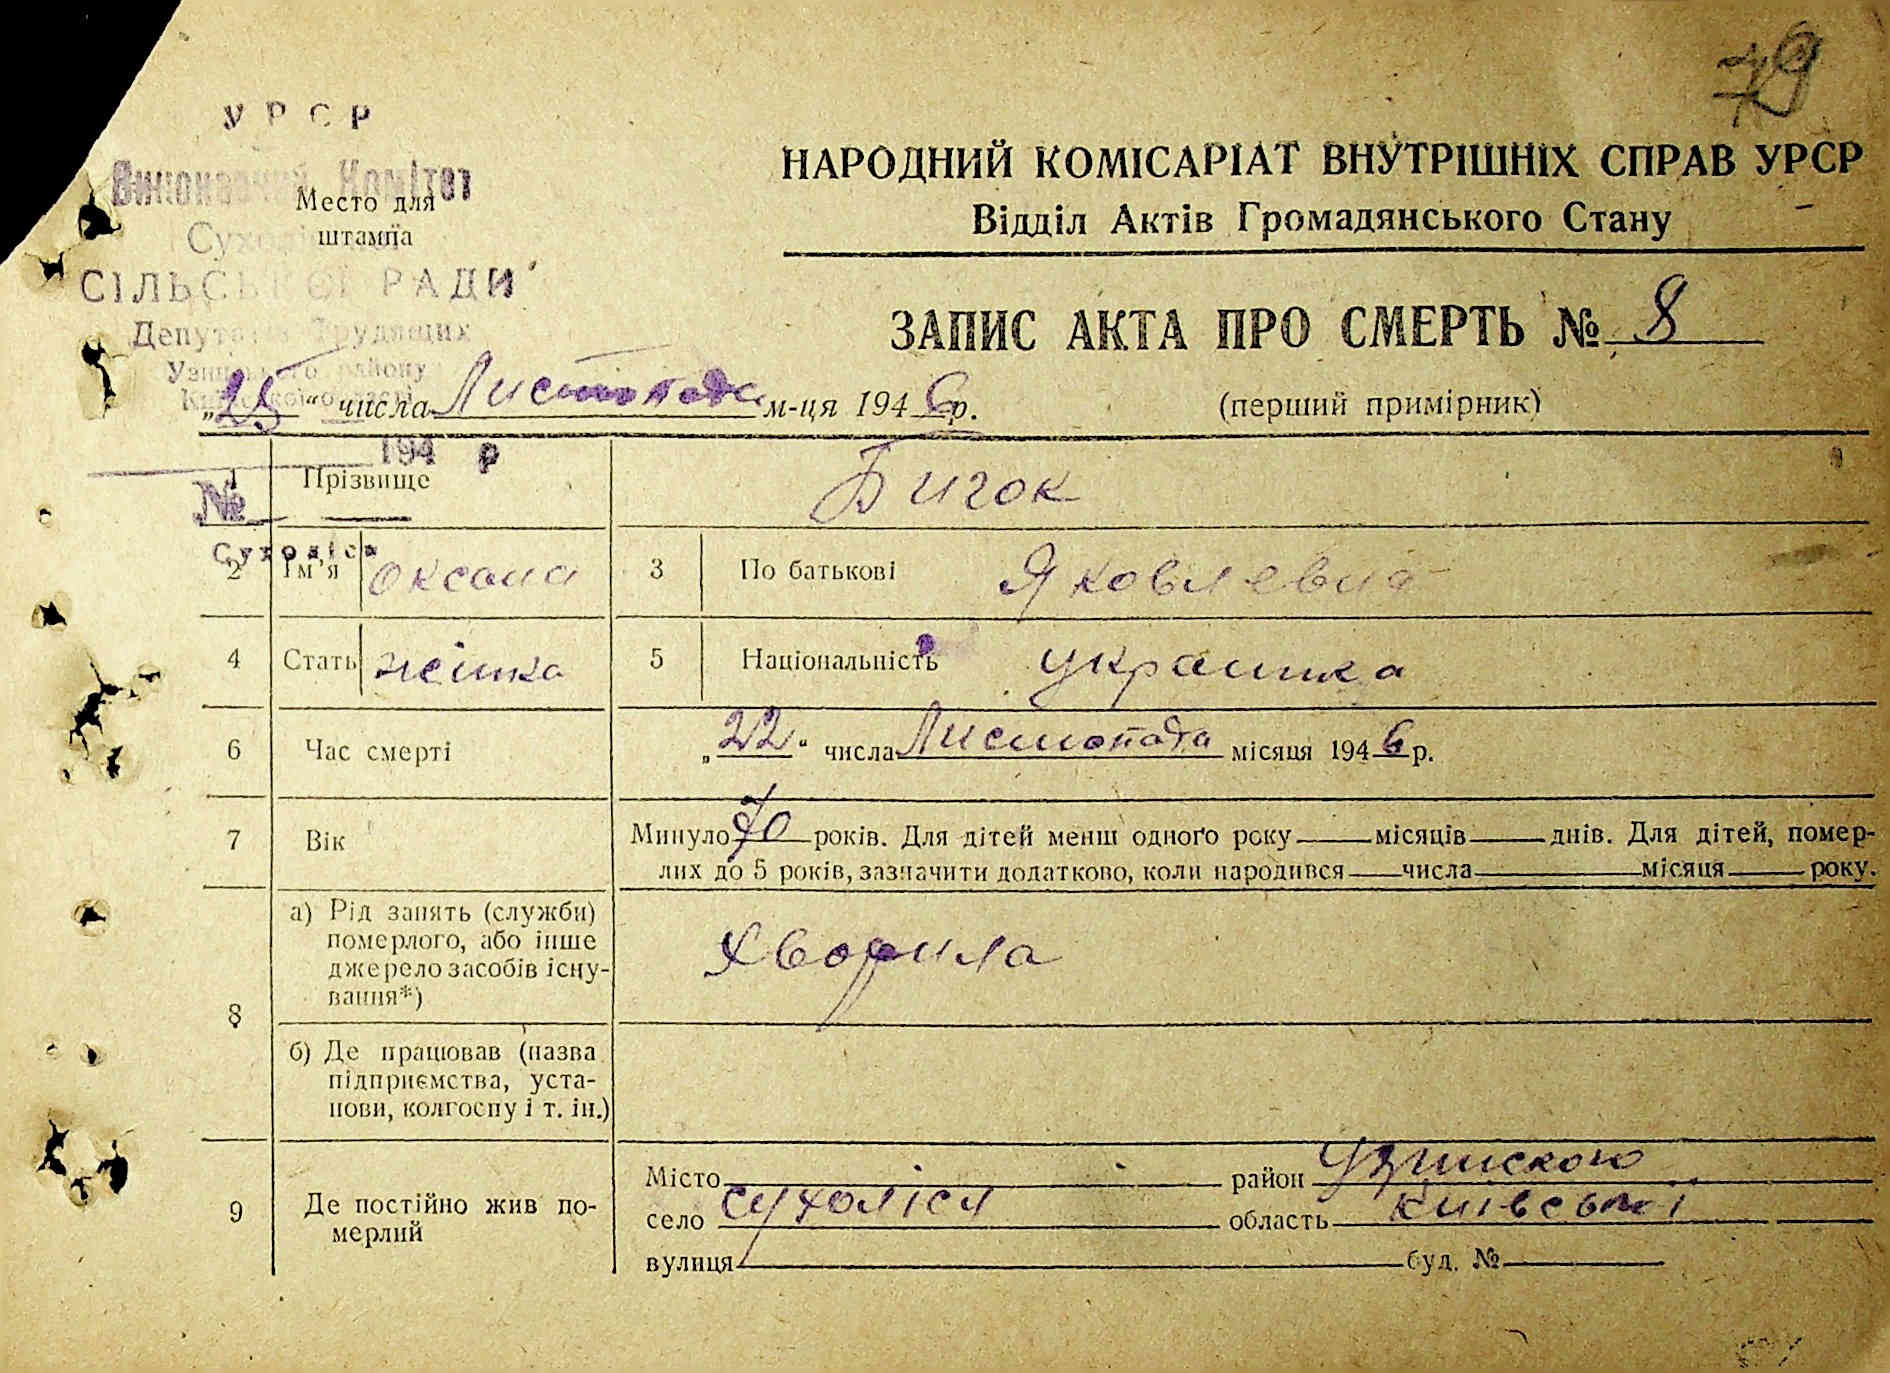 79
УРСР
Виконавчий Комітет
Место для
штампа
СІЛЬСЬКОЇ РАДИ
Депутатів Трудящих
НАРОДНИЙ КОМІСАРІАТ ВНУТРІШНІХ СПРАВ УРСР
Відділ Актів Громадянського Стану
ЗАПИС АКТА ПРО СМЕРТЬ № 8
„25“ числа Листопада м-ця 1946 р. (перший примірник)
194 р
№
1 Прізвище Бигок
Сухоліси
2 Ім'я Оксана 3 По батькові Яковлевна
4 Стать жінка 5 Національність українка
6 Час смерті „22“ числа Листопада місяця 1946 р.
7 Вік Минуло 70 років. Для дітей менш одного року місяців днів. Для дітей, помер-
лих до 5 років, зазначити додатково, коли народився числа місяця року.
8 а) Рід занять (служби)
померлого, або інше
джерело засобів існу-
вання*)
Хворила
б) Де працював (назва
підприємства, уста-
нови, колгоспу і т. ін.)
9 Де постійно жив по-
мерлий
Місто район Узинского
село Сухоліся область Київської
вулиця буд. №